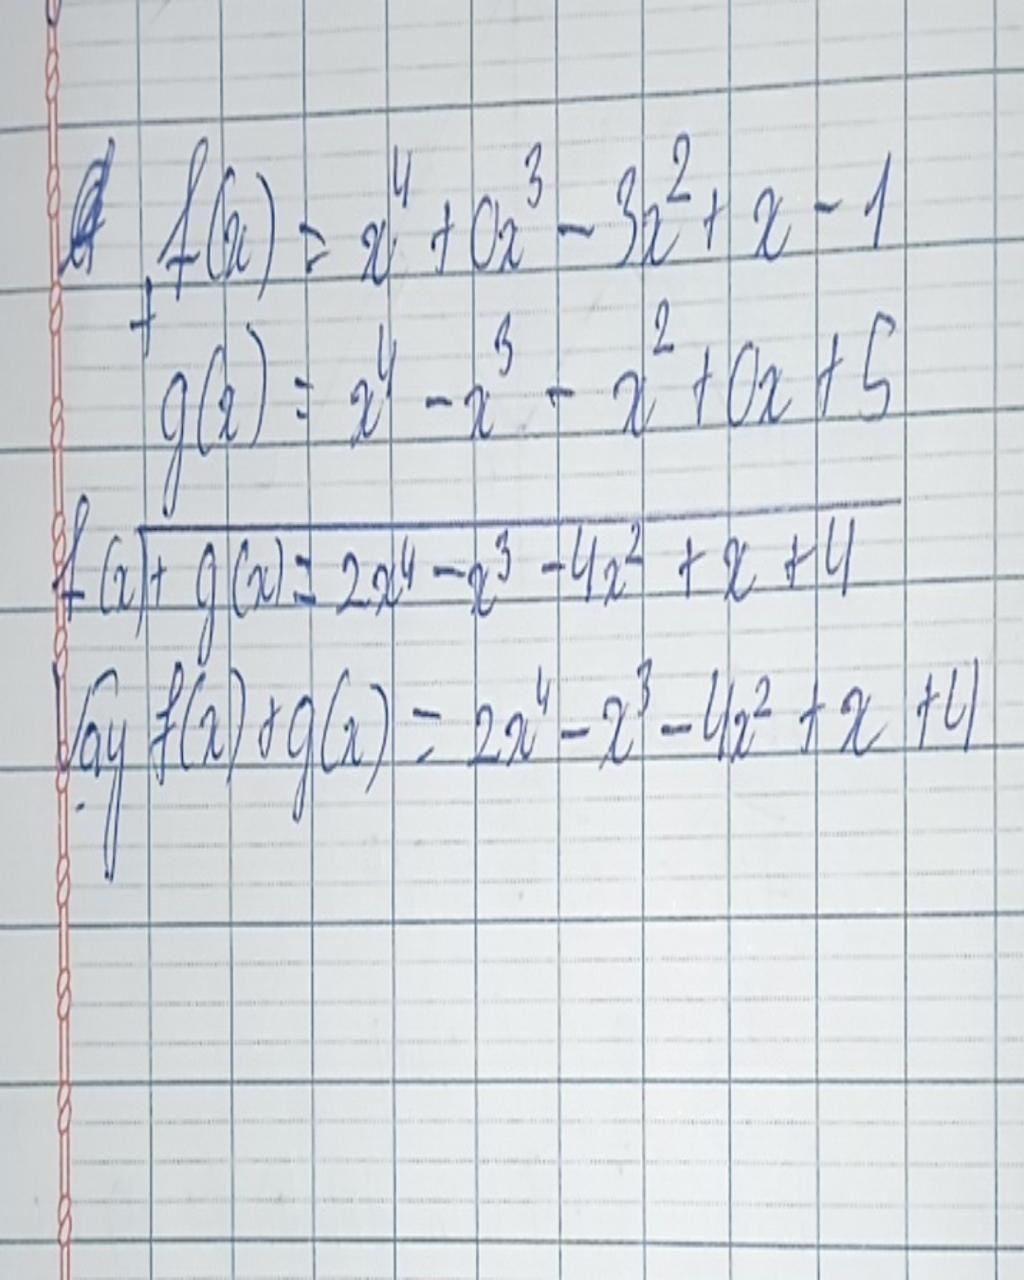 f(x) = x⁴ + 0x³ - 3x² + x - 1
+
g(x) = x⁴ - x³ - x² + 0x + 5
f(x) + g(x) = 2x⁴ - x³ - 4x² + x + 4
Vậy f(x) + g(x) = 2x⁴ - x³ - 4x² + x + 4